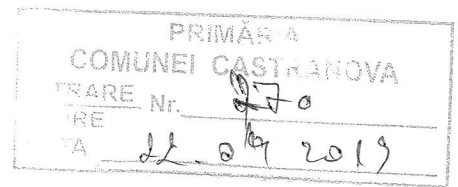 PRIMĂR A
COMUNEI CASTRANOVA
TRARE Nr. 270
RE
TA 22. 2019